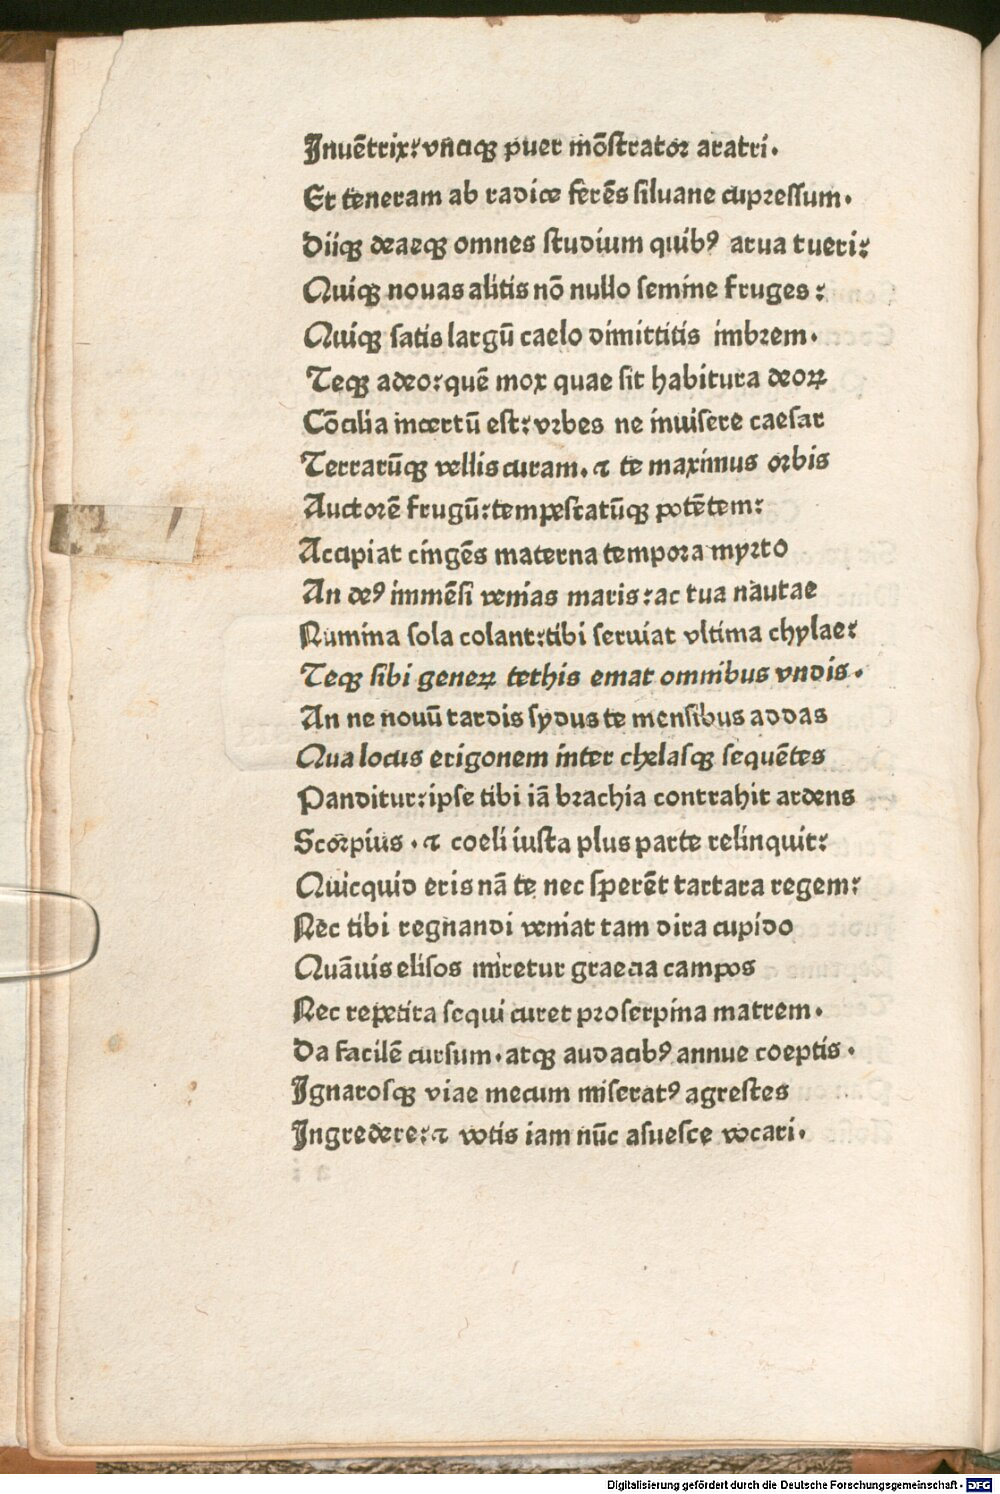 Inuētrix: vnciqꝫ puer mōstrator aratri.
Et teneram ab radice ferēs siluane cupressum.
Diiqꝫ deaeqꝫ omnes studium quibꝰ arua tueri:
Quiqꝫ nouas alitis nō nullo semine fruges:
Quiqꝫ satis largū caelo dimittitis imbrem.
Teqꝫ adeo: quē mox quae sit habitura deoꝝ
Cōcilia incertū est: vrbes ne inuisere caesar
Terrarūqꝫ vellis curam. ⁊ te maximus orbis
Auctorē frugū: tempestatūqꝫ potētem:
Accipiat cingēs materna tempora myrto
An deꝰ immēsi venias maris: ac tua nautae
Numina sola colant: tibi seruiat vltima chylae:
Teqꝫ sibi geneꝝ tethis emat omnibus vndis.
An ne nouū tardis sydus te mensibus addas
Qua locus erigonem inter chelasqꝫ sequētes
Panditur: ipse tibi iā brachia contrahit ardens
Scorpius. ⁊ coeli iusta plus parte relinquit:
Quicquid eris nā te nec sperēt tartara regem:
Nec tibi regnandi veniat tam dira cupido
Quāuis elisos miretur graecia campos
Nec repetita sequi curet proserpina matrem.
Da facilē cursum. atqꝫ audacibꝰ annue coeptis.
Ignarosqꝫ viae mecum miseratꝰ agrestes
Ingredere: ⁊ votis iam nūc asuesce vocari.
Digitalisierung gefördert durch die Deutsche Forschungsgemeinschaft - DFG